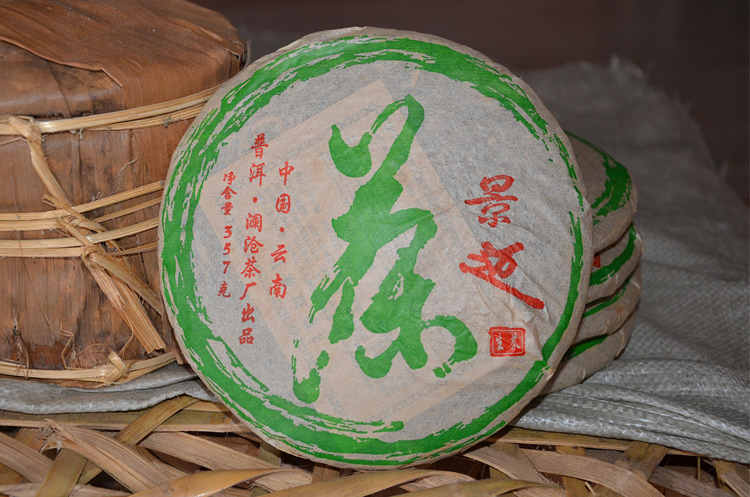 景迈
茶
中国·云南
普洱·澜沧茶厂出品
净含量357克